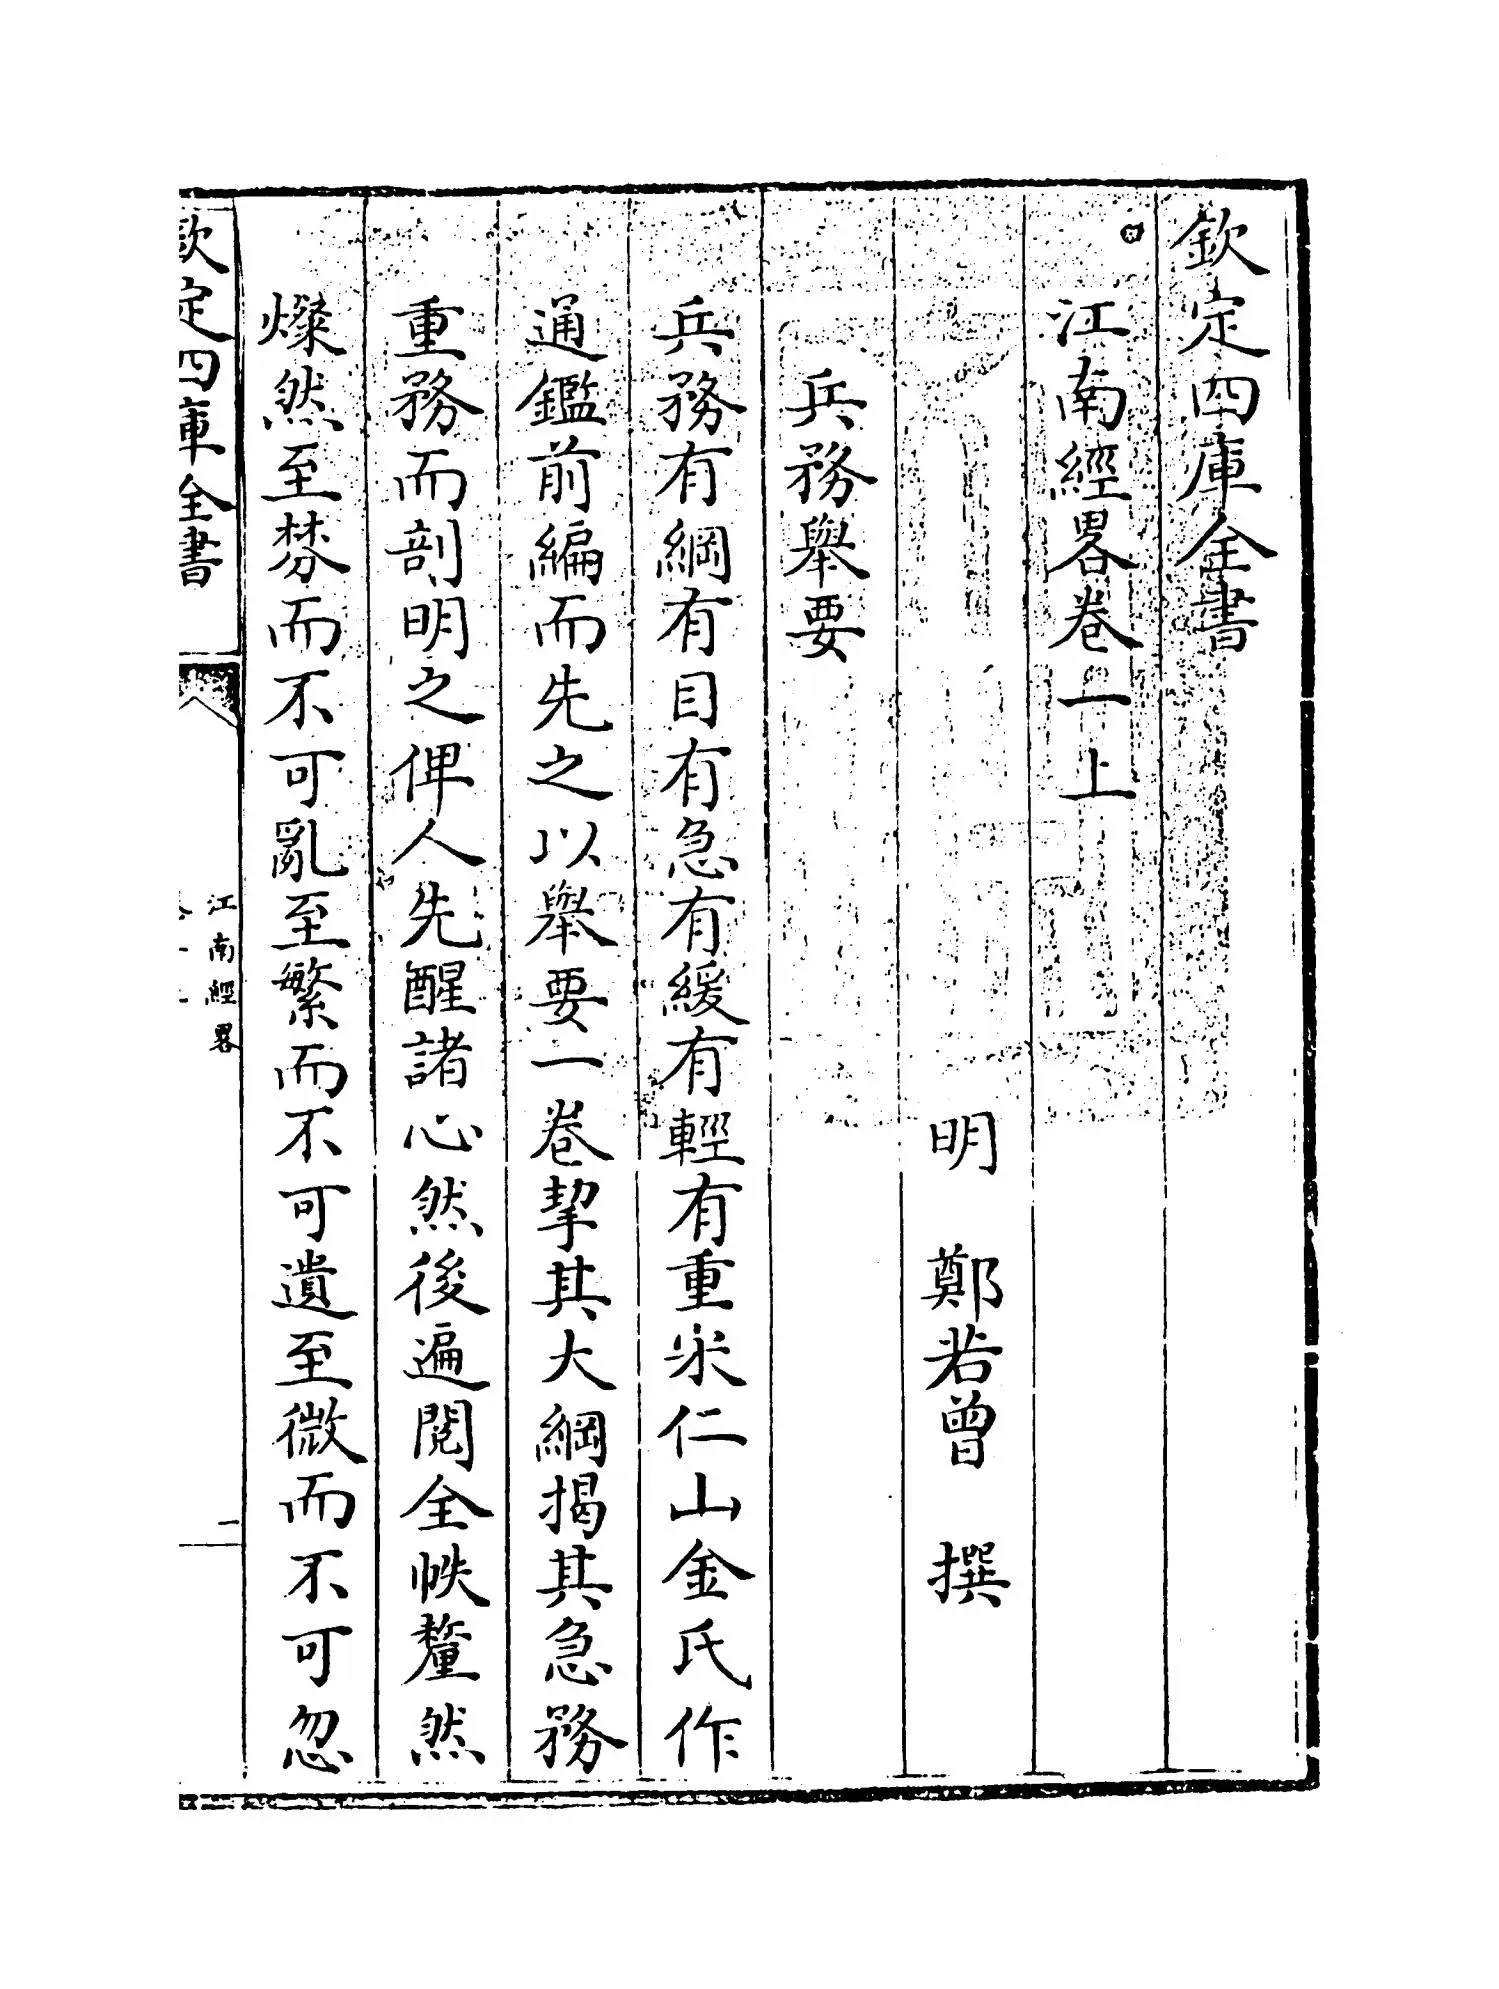 欽定四庫全書
江南經畧卷一上
明 鄭若曾 撰
兵務舉要
兵務有綱有目有急有緩有輕有重宋仁山金氏作
通鑑前編而先之以舉要一卷挈其大綱揭其急務
重務而剖明之俾人先醒諸心然後遍閱全帙釐然
燦然至棼而不可亂至繁而不可遺至微而不可忽
欽定四庫全書
江南經畧
一